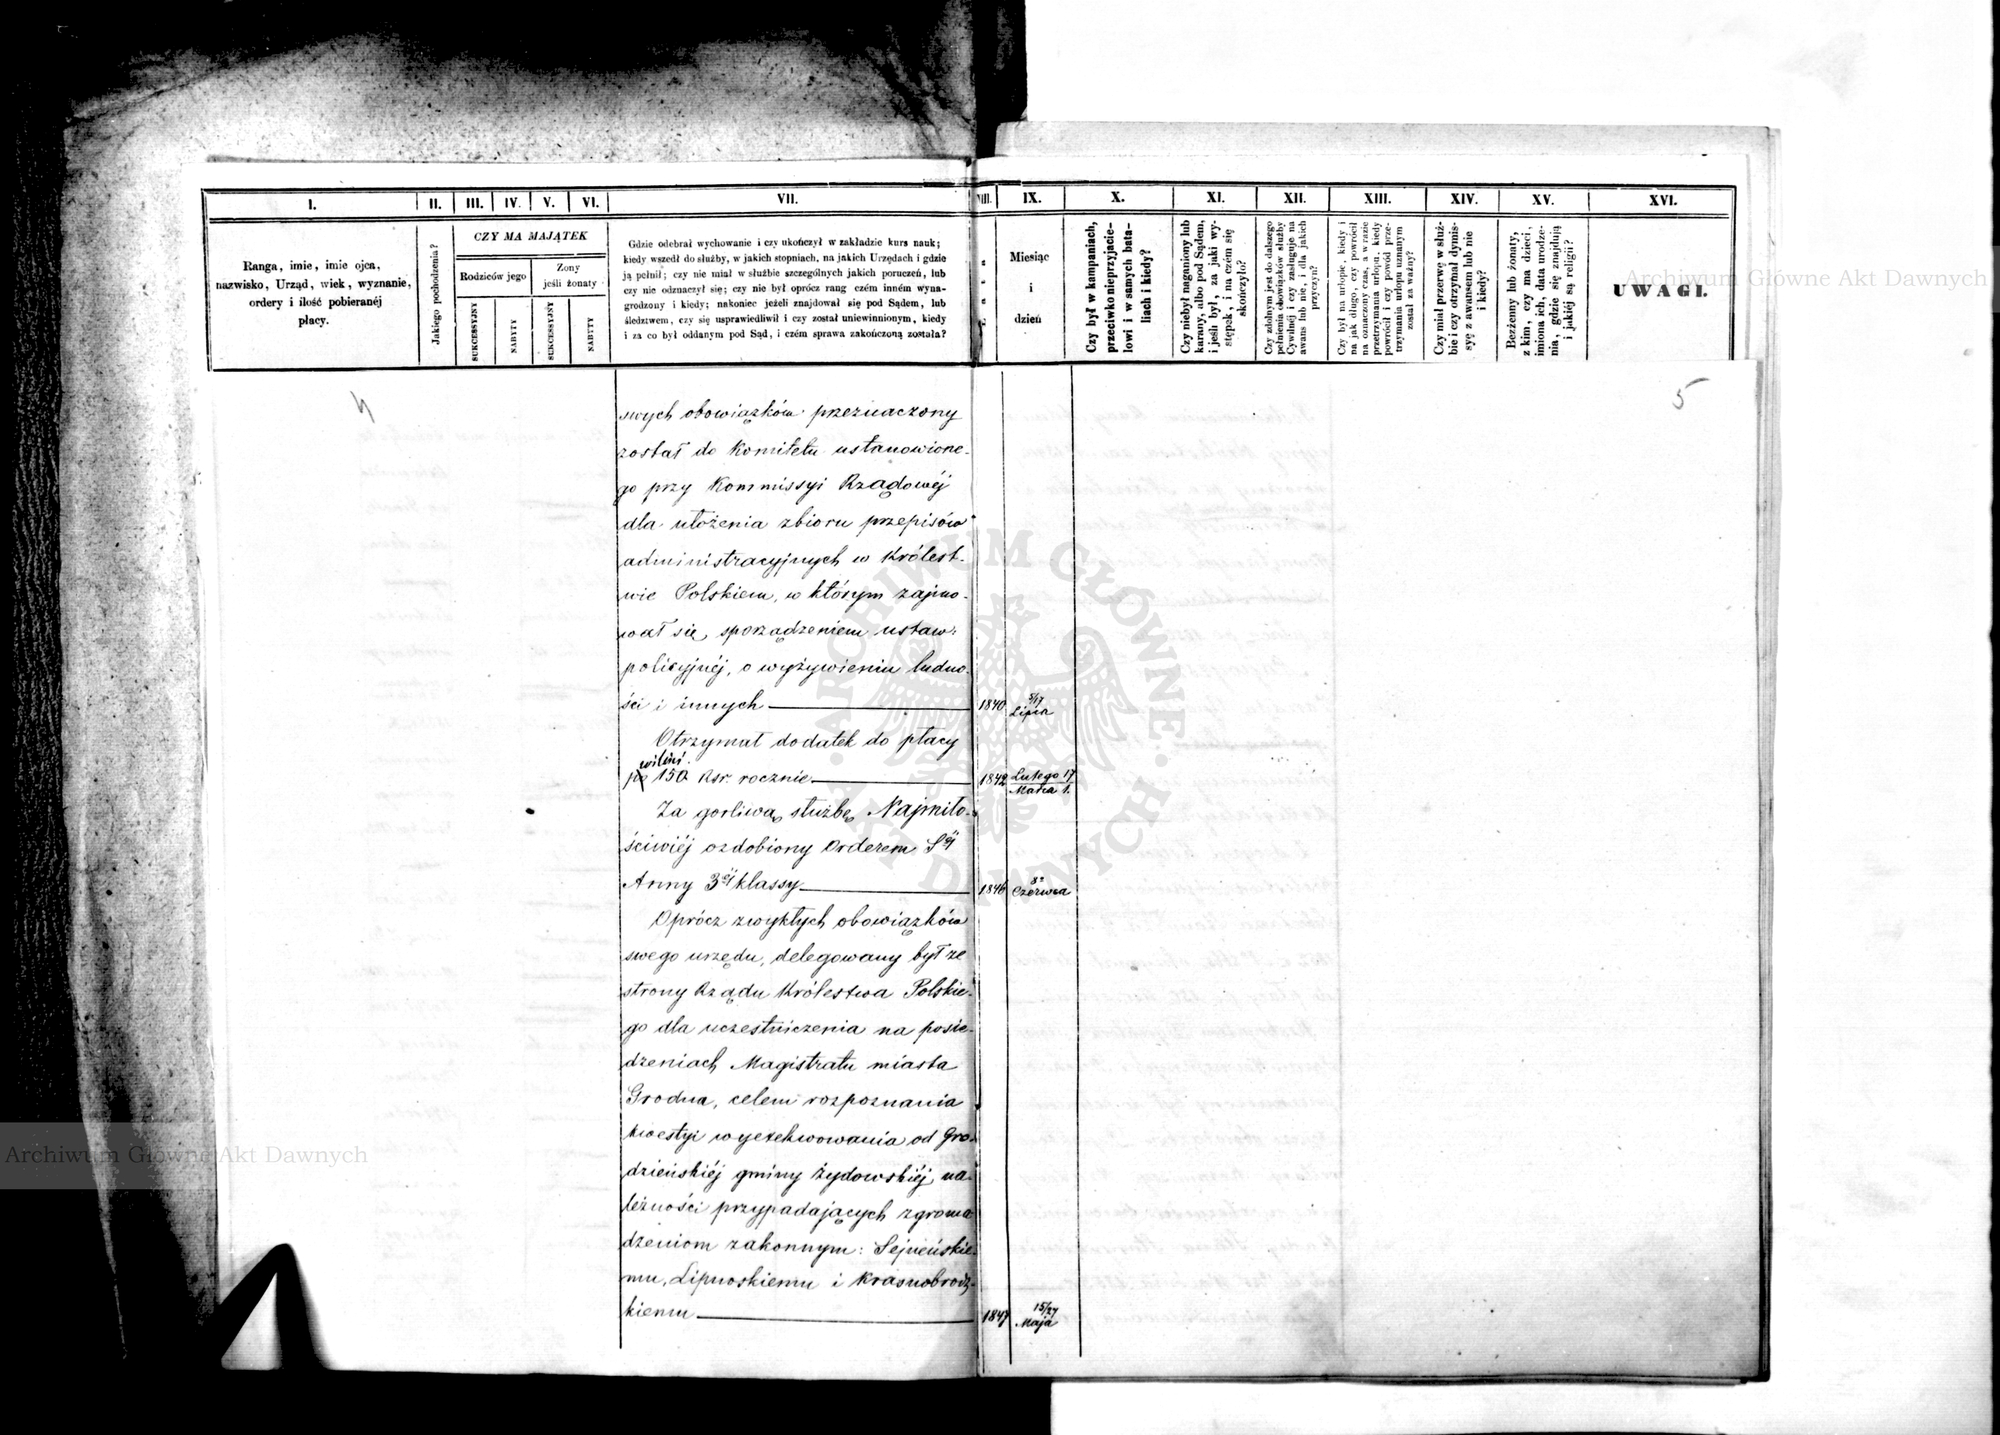 I.
II.
III.
IV.
V.
VI.
VII.
VIII.
IX.
X.
XI.
XII.
XIII.
XIV.
XV.
XVI.
Ranga, imie, imie ojca,
nazwisko, Urząd, wiek, wyznanie,
ordery i ilość pobieranéj
płacy.
Jakiego pochodzenia?
CZY MA MAJĄTEK
Rodziców jego
Żony
jeśli żonaty
SUKCESSYJNY
NABYTY
SUKCESSYJNY
NABYTY
Gdzie odebrał wychowanie i czy ukończył w zakładzie kurs nauk;
kiedy wszedł do służby, w jakich stopniach, na jakich Urzędach i gdzie
ją pełnił; czy nie miał w służbie szczególnych jakich poruczeń, lub
czy nie odznaczył się; czy nie był oprócz rang czém inném wyna-
grodzony i kiedy; nakoniec jeżeli znajdował się pod Sądem, lub
śledztwem, czy się usprawiedliwił i czy został uniewinnionym, kiedy
i za co był oddanym pod Sąd, i czém sprawa zakończoną została?
Miesiąc
i
dzień
Czy był w kampaniach,
przeciwko nieprzyjacie-
lowi i w samych bata-
liach i kiedy?
Czy niebył naganiony lub
karany, albo pod Sądem,
i jeśli był, za jaki wy-
stępek, i na czém się
skończyło?
Czy zdolnym jest do dalszego
pełnienia obowiązków służby
Cywilnéj i czy zasługuje na
awans lub nie, i dla jakich
przyczyn?
Czy był na urlopie, kiedy i
na jak długo, czy powrócił
na oznaczony czas, a w razie
przetrzymania urlopu, kiedy
powrócił i czy powód prze-
trzymania urlopu uznanym
został za ważny?
Czy miał przerwę w służ-
bie i czy otrzymał dymis-
syę z awansem lub nie
i kiedy?
Bezżenny lub żonaty,
z kim, czy ma dzieci,
imiona ich, data urodze-
nia, gdzie się znajdują
i jakiéj są religii?
UWAGI.
4
5
swych obowiązków przeznaczony
został do Komitetu ustanowione-
go przy Kommissyi Rządowéj
dla ułożenia zbioru przepisów
administracyjnych w Królest-
wie Polskiem, w którym zajmo-
wał się sporządzeniem ustaw:
policyjnéj, o wyżywieniu ludno-
ści i innych 1840 5/17 Lipca
Otrzymał dodatek do płacy
150 Rsr. rocznie 1842 Lutego 17 Marca 1.
Za gorliwą służbę Najmiło-
ściwiéj ozdobiony Orderem Sej
Anny 3éj klassy 1846 8° Czerwca
Oprócz zwykłych obowiązków
swego urzędu, delegowany był ze
strony Rządu Królestwa Polskie-
go dla uczestniczenia na posie-
dzeniach Magistratu miasta
Grodna, celem rozpoznania
kwestyi wyexekwowania od Gro-
dzieńskiéj gminy żydowskiéj na-
leżności przypadających zgroma
dzeniom zakonnym: Sejneńskie-
mu, Lipnoskiemu i Krasnobrodz-
kiemu 1847 15/27 Maja
Archiwum Główne Akt Dawnych
Archiwum Główne Akt Dawnych
ARCHIWUM GŁÓWNE AKT DAWNYCH